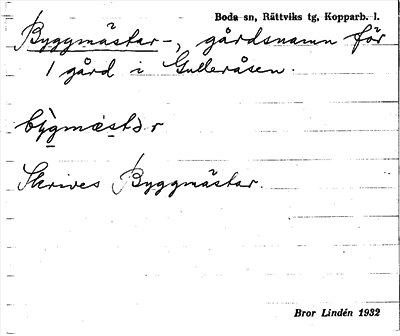 Boda sn, Rättviks tg, Kopparb. l.
Byggmästar-, gårdsnamn för
1 gård i Gulleråsen.
bỳ̱gmæ̱stə.r
Skrives Byggmästar.
Bror Lindén 1932